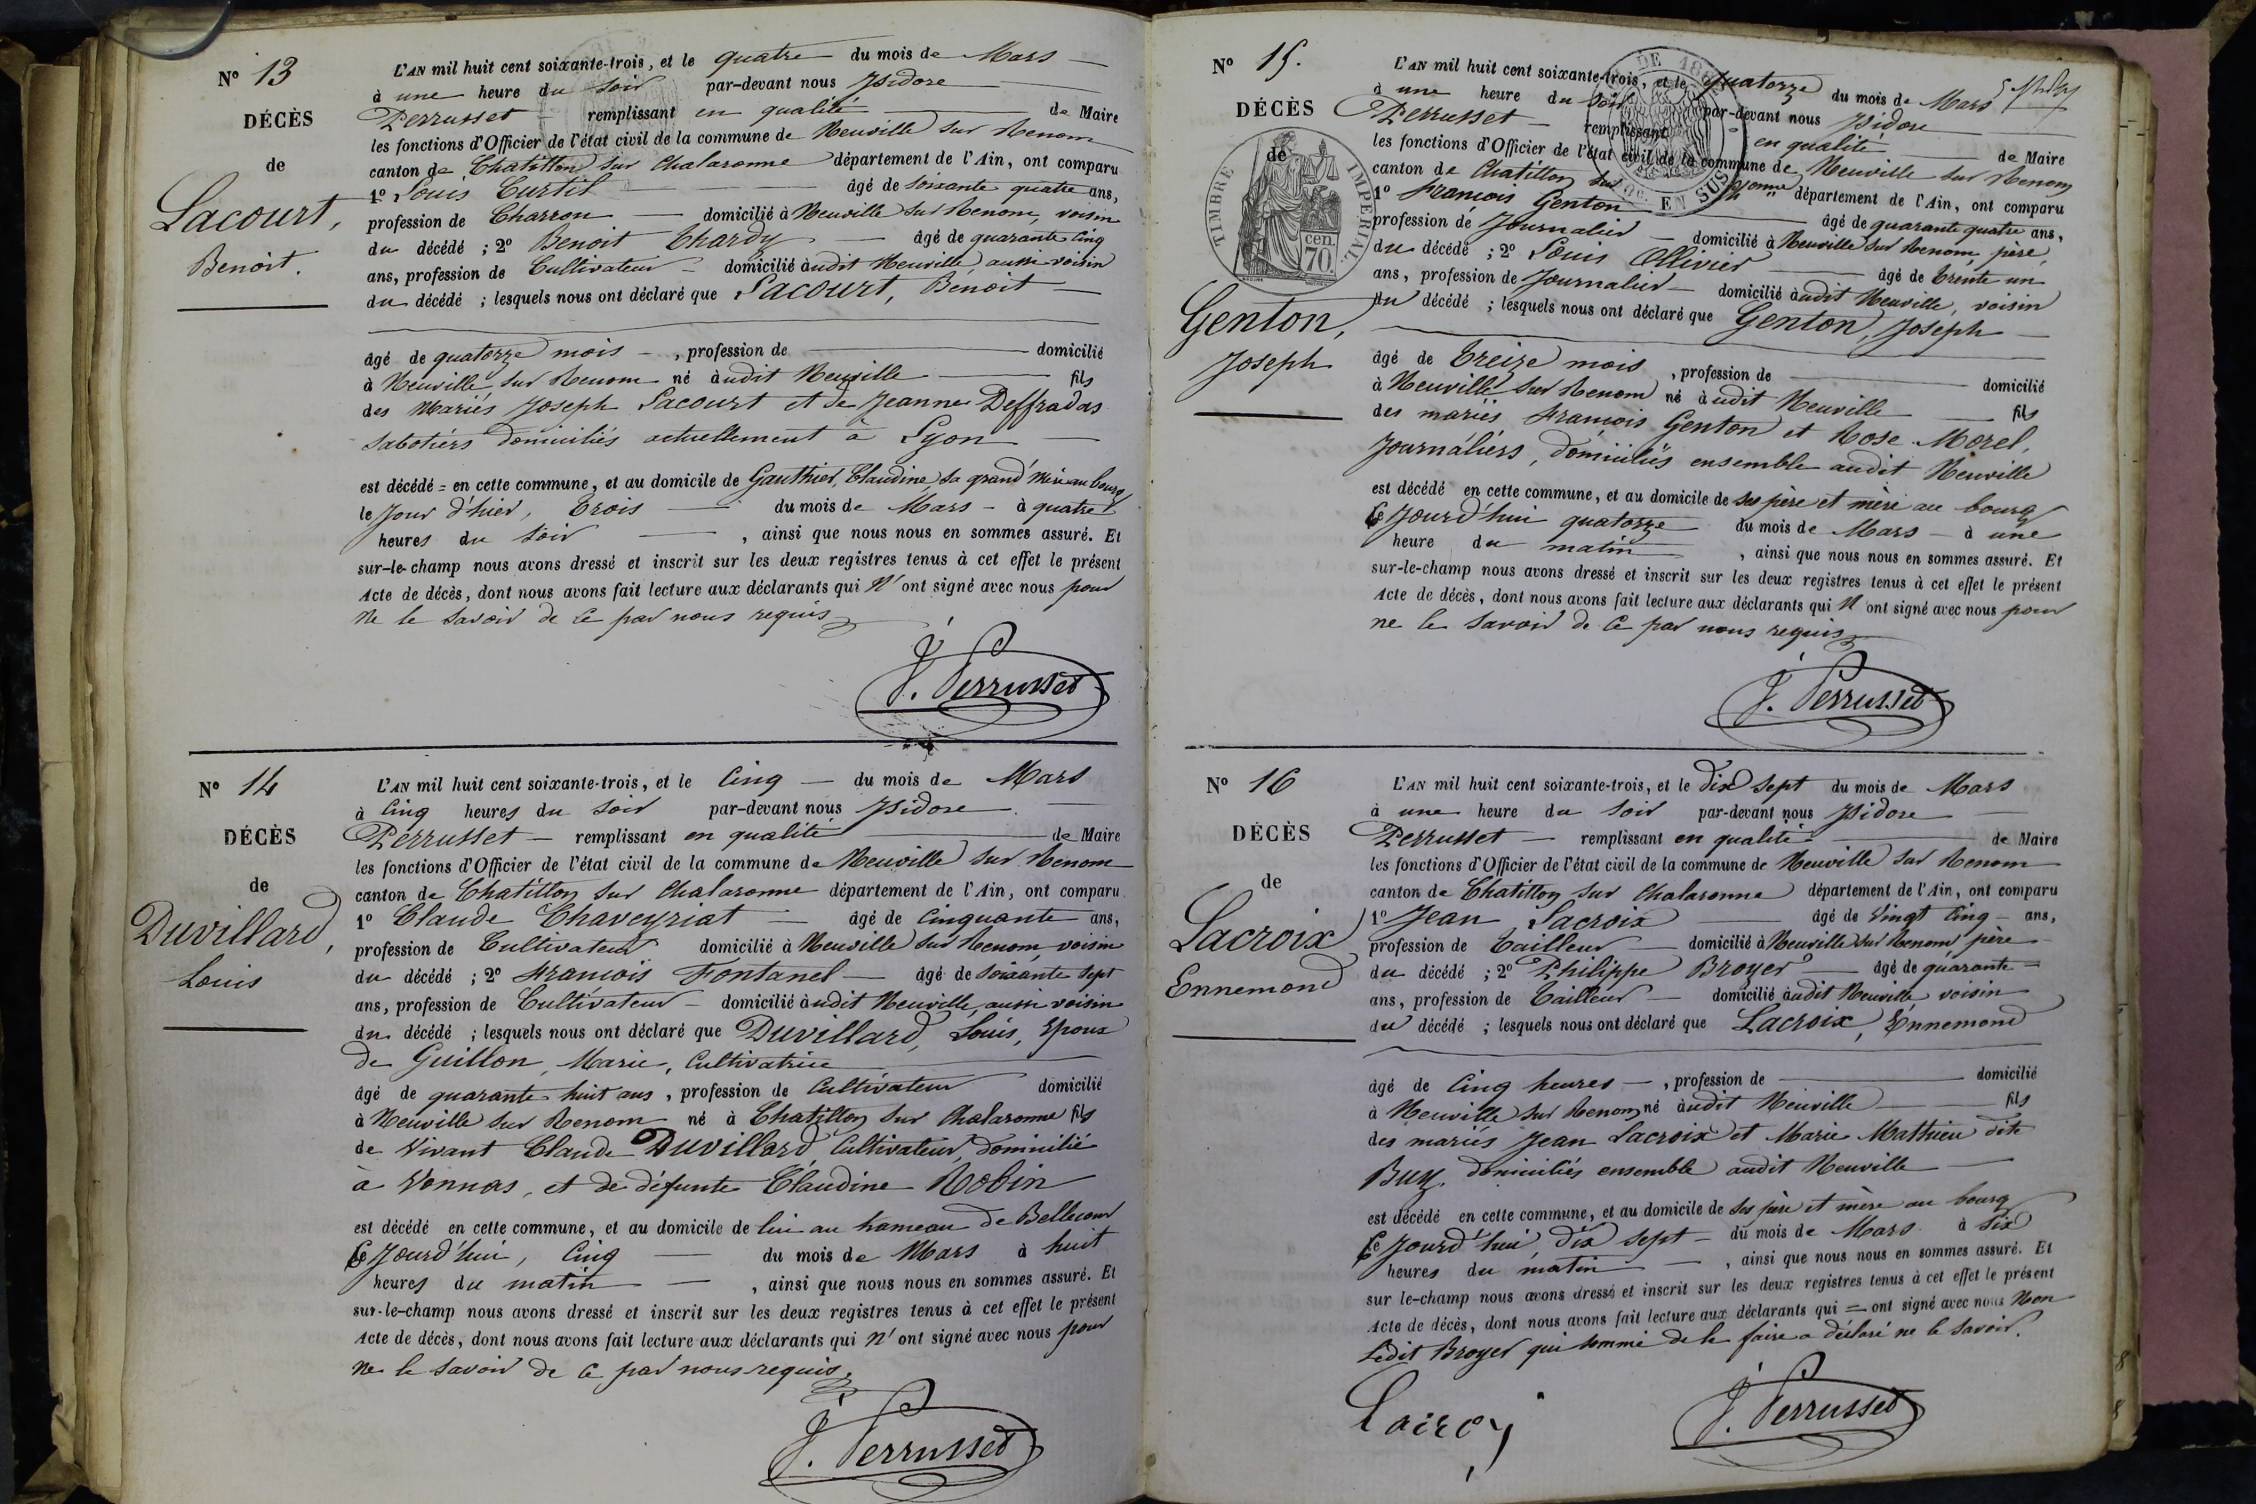 N° 13
DÉCÈS
de
Lacourt,
Benoit.
L'AN mil huit cent soixante-trois, et le quatre du mois de Mars
à une heure du soir par-devant nous Isidore
Perrusset remplissant en qualité de Maire
les fonctions d'Officier de l'état civil de la commune de Neuville sur Renom
canton de Chatillon sur Chalaronne département de l'Ain, ont comparu
1° Louis Curtil âgé de soixante quatre ans,
profession de Charron domicilié à Neuville sur Renom, voisin
du décédé ; 2° Benoit Chardy âgé de quarante cinq
ans, profession de Cultivateur domicilié àudit Neuville, aussi voisin
du décédé ; lesquels nous ont déclaré que Lacourt, Benoit
âgé de quatorze mois , profession de domicilié
à Neuville sur Renom né àudit Neuville fils
des Mariés Joseph Lacourt et de Jeanne Deffradas
sabotiers domiciliés actuellement à Lyon
est décédé = en cette commune, et au domicile de Gauthier, Claudine sa grand'Mère au bourg
le Jour d'hier, Trois du mois de Mars à quatre
heures du soir , ainsi que nous nous en sommes assuré. Et
sur-le-champ nous avons dressé et inscrit sur les deux registres tenus à cet effet le présent
Acte de décès, dont nous avons fait lecture aux déclarants qui N'ont signé avec nous pour
ne le savoir de ce par nous requis
J. Perrusset
N° 14
DÉCÈS
de
Duvillard,
Louis
L'AN mil huit cent soixante-trois, et le Cinq du mois de Mars
à Cinq heures du soir par-devant nous Isidore
Perrusset remplissant en qualité de Maire
les fonctions d'Officier de l'état civil de la commune de Neuville sur Renom
canton de Chatillon sur Chalaronne département de l'Ain, ont comparu
1° Claude Chaveyriat âgé de Cinquante ans,
profession de Cultivateur domicilié à Neuville sur Renom, voisin
du décédé ; 2° François Fontanel âgé de soixante sept
ans, profession de Cultivateur domicilié àudit Neuville, aussi voisin
du décédé ; lesquels nous ont déclaré que Duvillard, Louis, Epoux
de Guillon, Marie, Cultivatrice
âgé de quarante huit ans , profession de Cultivateur domicilié
à Neuville sur Renom né à Chatillon sur Chalaronne fils
de Vivant Claude Duvillard, Cultivateur, domicilié
à Vonnas, et de défunte Claudine Robin
est décédé en cette commune, et au domicile de lui au hameau de Bellecour
Ce Jourd'hui, Cinq du mois de Mars à huit
heures du matin , ainsi que nous nous en sommes assuré. Et
sur-le-champ nous avons dressé et inscrit sur les deux registres tenus à cet effet le présent
Acte de décès, dont nous avons fait lecture aux déclarants qui N'ont signé avec nous pour
ne le savoir de ce par nous requis.
J. Perrusset
N° 15.
DÉCÈS
de
TIMBRE IMPÉRIAL
cen. 70.
Genton,
Joseph
L'AN mil huit cent soixante-trois, et le Quatorze du mois de Mars
à une heure du soir par-devant nous Isidore
Perrusset remplissant en qualité de Maire
les fonctions d'Officier de l'état civil de la commune de Neuville sur Renom
canton de Chatillon sur département de l'Ain, ont comparu
1° François Genton âgé de quarante quatre ans,
profession de Journalier domicilié à Neuville sur Renom, père
du décédé ; 2° Louis Ollivier âgé de trente un
ans, profession de Journalier domicilié àudit Neuville, voisin
du décédé ; lesquels nous ont déclaré que Genton, Joseph
âgé de Treize mois , profession de domicilié
à Neuville sur Renom né àudit Neuville fils
des mariés François Genton et Rose Morel,
Journaliers, domiciliés ensemble audit Neuville
est décédé en cette commune, et au domicile de ses père et mère au bourg
Ce Jourd'hui quatorze du mois de Mars à une
heure du matin , ainsi que nous nous en sommes assuré. Et
sur-le-champ nous avons dressé et inscrit sur les deux registres tenus à cet effet le présent
Acte de décès, dont nous avons fait lecture aux déclarants qui N'ont signé avec nous pour
ne le savoir de ce par nous requis
J. Perrusset
N° 16
DÉCÈS
de
Lacroix
Ennemond
L'AN mil huit cent soixante-trois, et le Dix sept du mois de Mars
à une heure du soir par-devant nous Isidore
Perrusset remplissant en qualité de Maire
les fonctions d'Officier de l'état civil de la commune de Neuville sur Renom
canton de Chatillon sur Chalaronne département de l'Ain, ont comparu
1° Jean Lacroix âgé de Vingt Cinq ans,
profession de Tailleur domicilié à Neuville sur Renom père
du décédé ; 2° Philippe Broyer âgé de quarante =
ans, profession de Tailleur domicilié àudit Neuville, voisin
du décédé ; lesquels nous ont déclaré que Lacroix, Ennemond
âgé de Cinq heures , profession de domicilié
à Neuville sur Renom né àudit Neuville fils
des mariés Jean Lacroix et Marie Matthieu dite
Buy, domiciliés ensemble audit Neuville
est décédé en cette commune, et au domicile de ses père et mère au bourg
Ce Jourd'hui, dix sept du mois de Mars à Six
heures du matin , ainsi que nous nous en sommes assuré. Et
sur le-champ nous avons dressé et inscrit sur les deux registres tenus à cet effet le présent
Acte de décès, dont nous avons fait lecture aux déclarants qui = ont signé avec nous Non
Ledit Broyer qui sommé de le faire a déclaré ne le savoir.
J. Perrusset